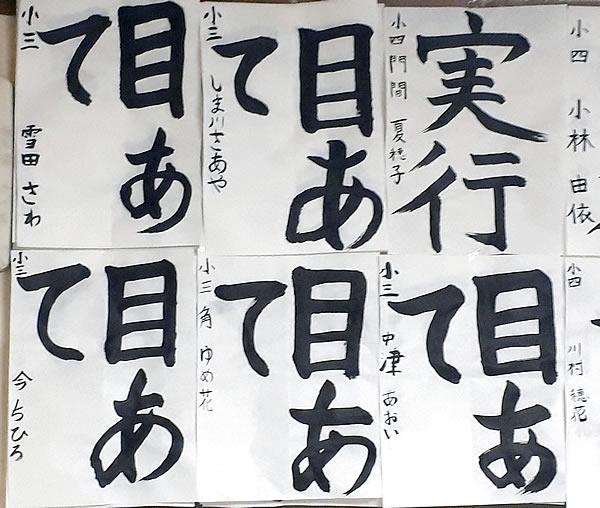 目あ
て
小三 雪田 さわ
目あ
て
小三 しま川 さあや
実行
小四 門間 夏穂子
小四 小林 由依
目あ
て
小三 今 ちひろ
目あ
て
小三 角 ゆめ花
目あ
て
小三 中津 あおい
小四 川村 穂花